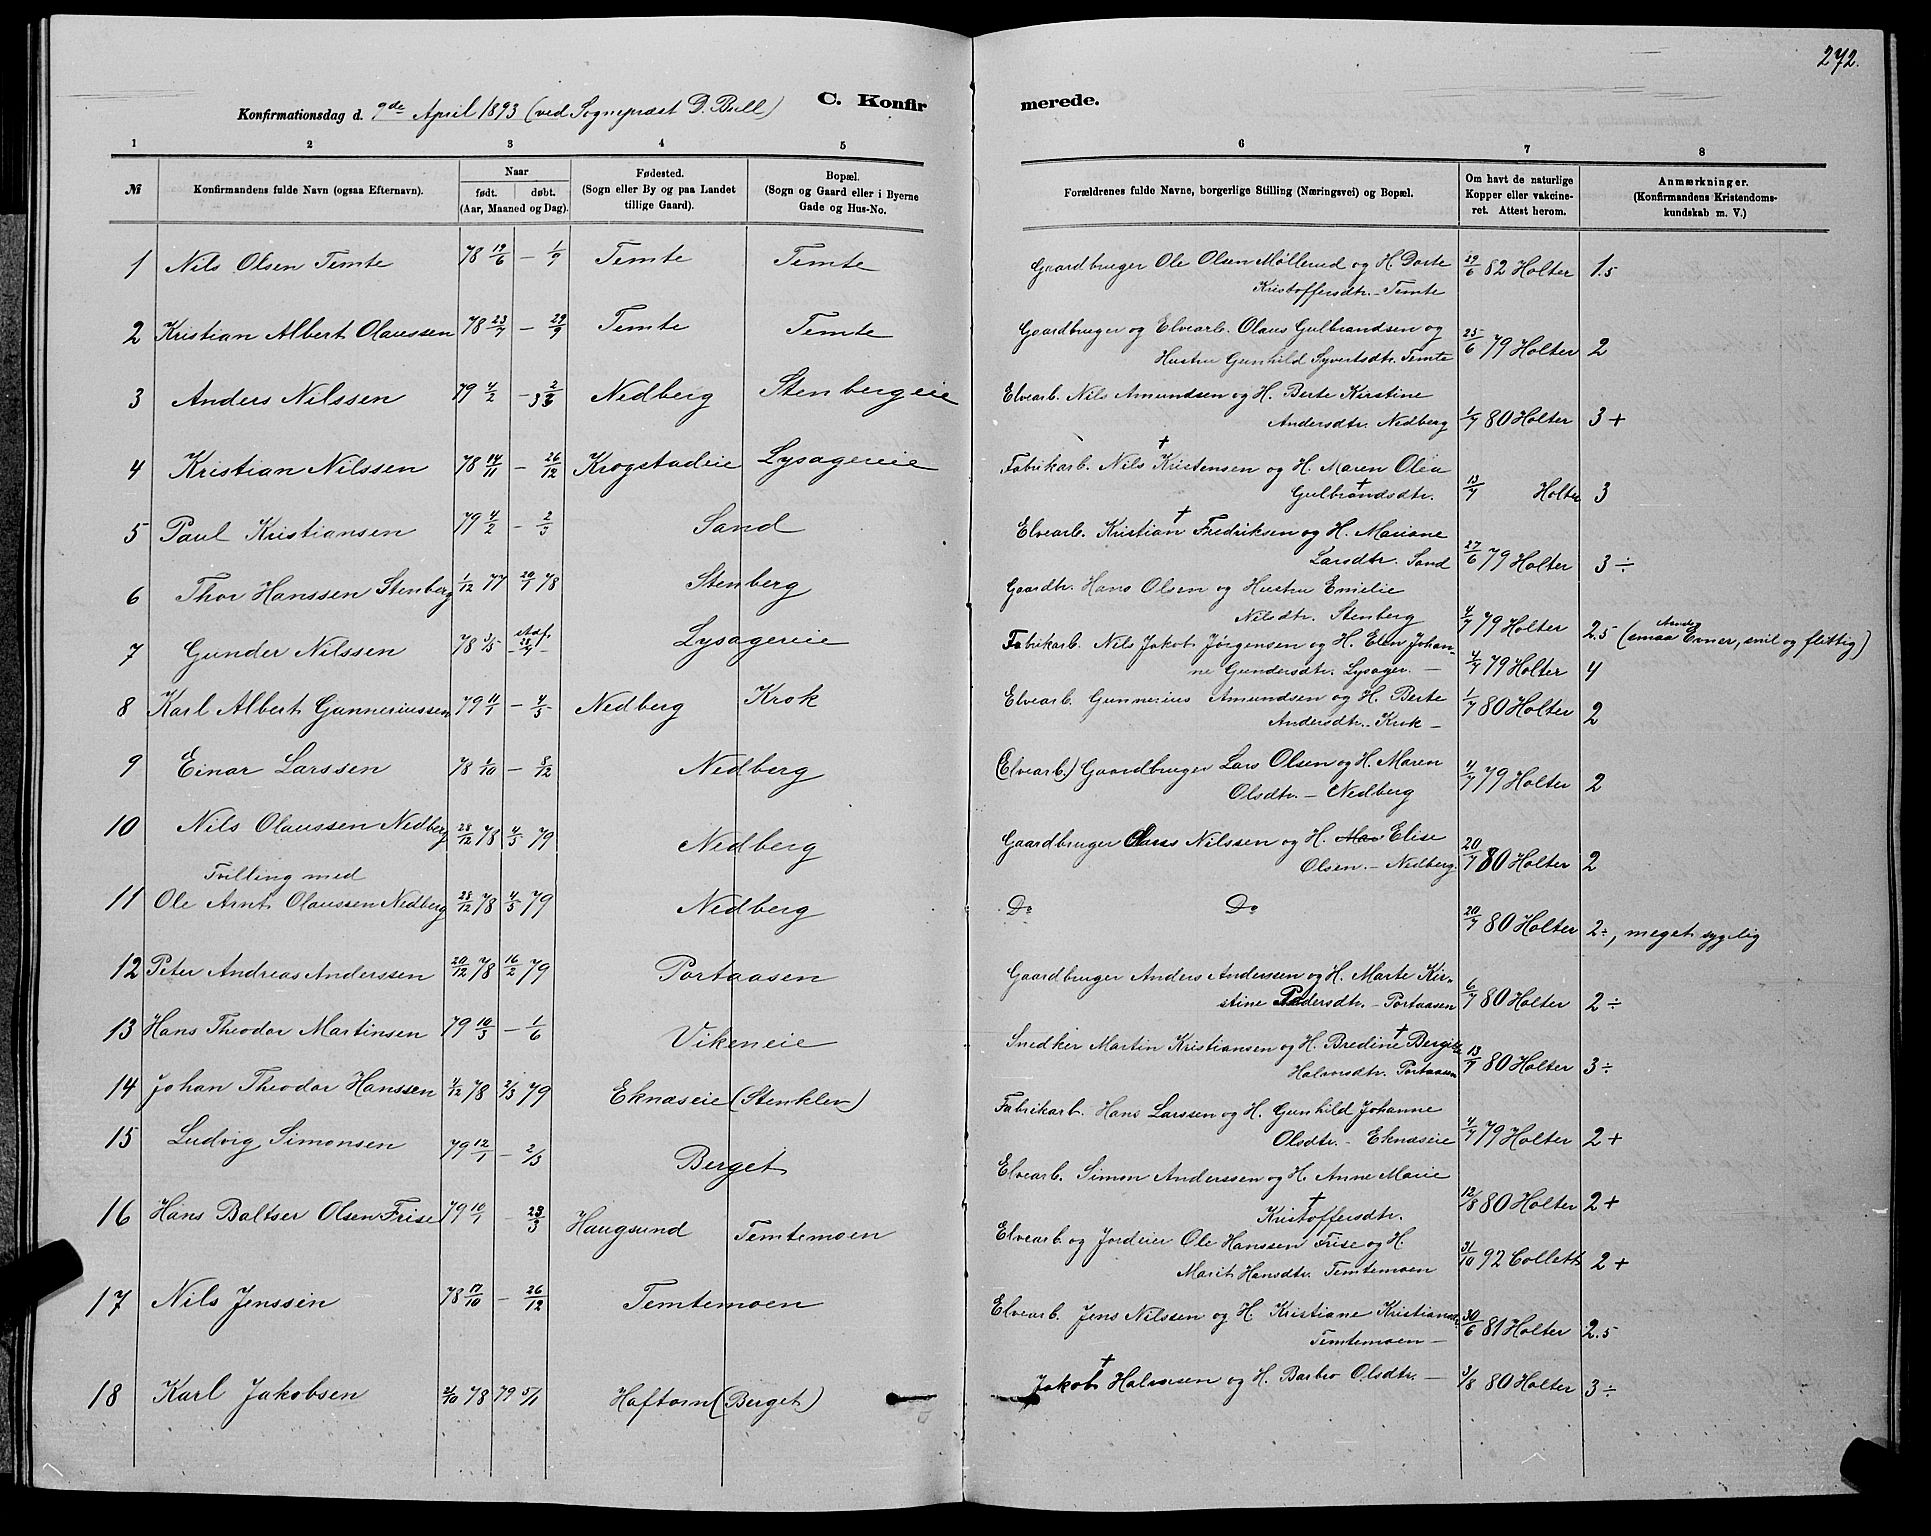 272.
Konfirmationsdag d. 9de April 1893 (ved Sognepræst D. Bull) C. Konfirmerede.
1 2 3 4 5 6 7 8
№ Konfirmandens fulde Navn (ogsaa Efternavn). Naar født. døbt. (Aar, Maaned og Dag). Fødested. (Sogn eller By og paa Landet tillige Gaard). Bopæl. (Sogn og Gaard eller i Byerne Gade og Hus-No. Forældrenes fulde Navne, borgerlige Stilling (Næringsvei) og Bopæl. Om havt de naturlige Kopper eller vakcineret. Attest herom. Anmærkninger. (Konfirmandens Kristendomskundskab m. V.)
1 Nils Olsen Temte 78 19/6 – 1/9 Temte Temte Gaardbruger Ole Olsen Møllerud og H. Dorte 29/6 82 Holter 1.5
Kristoffersdtr. – Temte
2 Kristian Albert Olaussen 78 23/7 – 29/9 Temte Temte Gaardbruger og Elvearb. Olaus Gulbrandsen og
Hustru Gunhild Syvertsdtr. Temte 25/6 79 Holter 2
3 Anders Nilssen 79 4/2 – Nedberg Stenbergeie Elvearb. Nils Amundsen og H. Berte Kirstine
Andersdtr. Nedberg 1/7 80 Holter 3+
4 Kristian Nilssen 78 14/11 – 26/12 Krogstadeie Lysagereie Fabrikarb. Nils † Kristensen og H. Maren Olea
Gulbrandsdtr. † 13/7 Holter 3
5 Paul Kristiansen 79 4/2 – 2/3 Sand Elvearb. Kristian † Fredriksen og H. Mariane
Larsdtr. Sand 27/6 79 Holter 3÷
6 Thor Hanssen Stenberg 1/12 77 20/1 78 Stenberg Gaardbr. Hans Olsen og Hustru Emilie
Nilsdtr. Stenberg 4/7 79 Holter 2.5 (smaa Evner, snil og flittig)
7 Gunder Nilssen 78 Lysagereie Fabrikarb. Nils Jakob Jørgensen og H. Elen Johanne
Gundersdtr. Lysager. – 4/7 79 Holter 4
8 Karl Albert Gunneriussen 79 11/1 – 4/5 Nedberg Krok Elvearb. Gunnerius Amundsen og H. Berte
Andersdtr. – Krok – 1/7 80 Holter 2
9 Einar Larssen 78 1/10 – 8/12 Nedberg (Elvearb.) Gaardbruger Lars Olsen og H. Maren
Olsdtr. – Nedberg 4/7 79 Holter 2
10 Nils Olaussen Nedberg 28/12 78 4/5 79 Nedberg Gaardbruger Olaus Nilssen og H. Mar Elise
Olsen. – Nedberg. 20/7 80 Holter 2
Tvilling med
11 Ole Arnt Olaussen Nedberg 28/12 78 4/5 79 Nedberg Do Do 20/7 80 Holter 2÷, meget sygelig
12 Peter Andreas Anderssen 20/12 78 16/2 79 Portaasen Gaardbruger Anders Anderssen og H. Marte Kirstine
Pedersdtr. – Portaasen 6/7 80 Holter 2÷
13 Hans Theodor Martinsen 79 10/3 – 1/6 Vikeneie Snedker Martin Kristiansen og H. Bredine † Bergitte
Halvorsdtr. Portaasen 13/7 80 Holter 3÷
14 Johan Theodor Hanssen 1/12 78 2/3 79 Eknaseie (Stenklev) Fabrikarb. Hans Larssen og H. Gunhild Johanne
Olsdtr. – Eknaseie 4/7 79 Holter 2+
15 Ludvig Simonsen 79 12/1 – 2/3 Berget Elvearb. Simon Anderssen og H. Anne Marie
Kristoffersdtr. † 12/8 80 Holter 2+
16 Hans Baltser Olsen Frisel 79 10/1 – 23/3 Haugsund Temtemoen Elvearb. og Jordeier Ole Hanssen Frise og H.
Marit Hansdtr. Temtemoen 31/10 92 Collett 2+
17 Nils Jenssen 78 17/10 – 26/12 Temtemoen Elvearb. Jens Nilssen og H. Kristiane Kristiansdtr.
Temtemoen – 30/6 81 Holter 2.5
18 Karl Jakobsen 2/10 78 79 5/1 Haftorn (Berget) Jakob † Halvorsen og H. Barbro Olsdtr. – 3/8 80 Holter 3÷